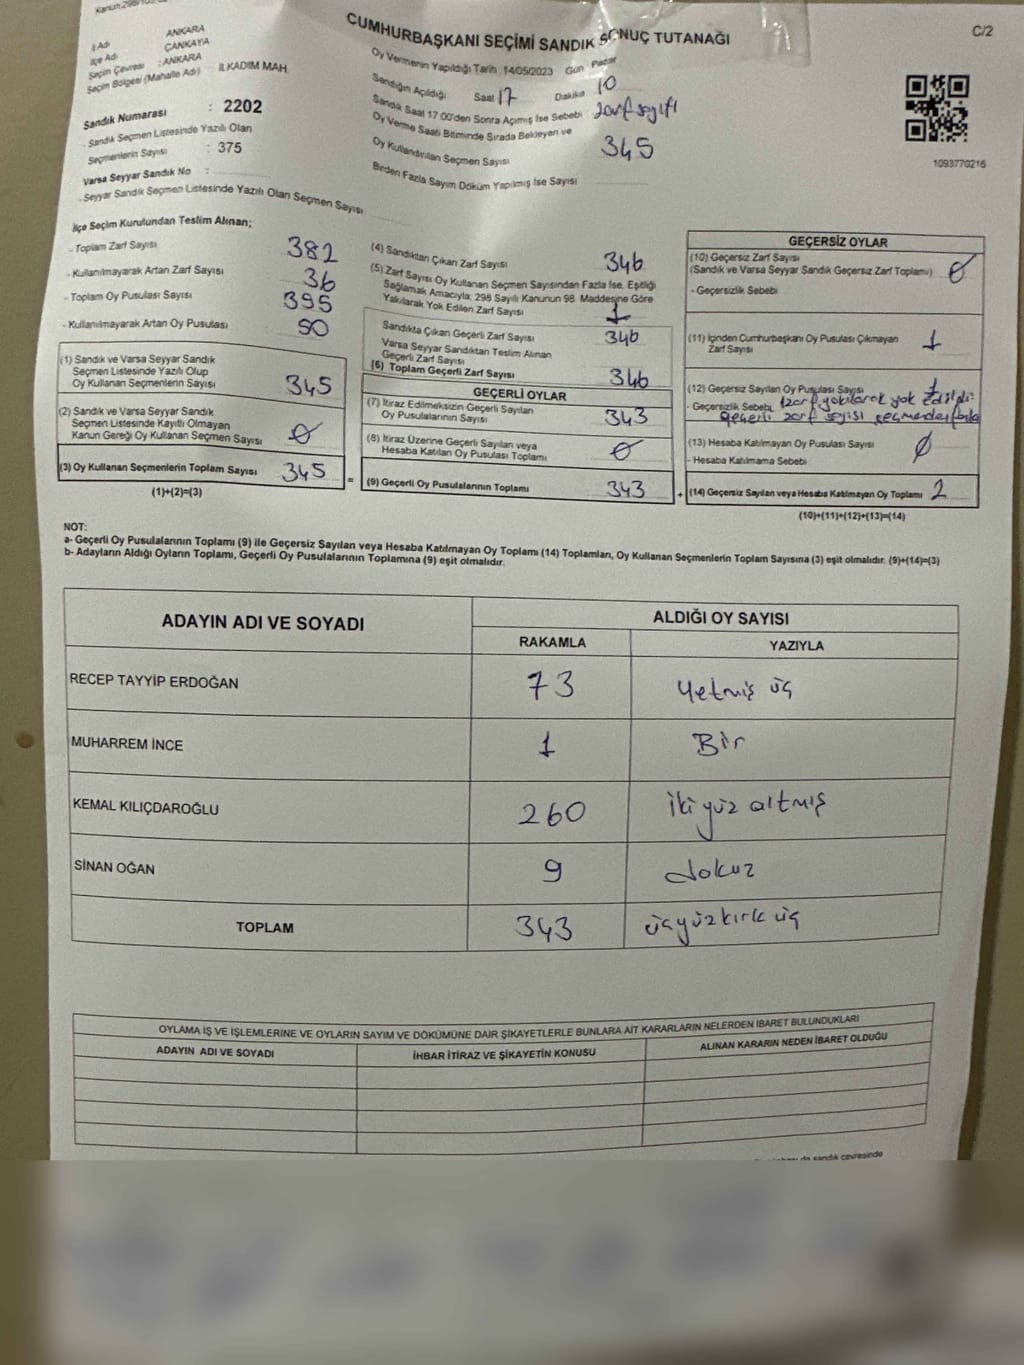 CUMHURBAŞKANI SEÇİMİ SANDIK SONUÇ TUTANAĞI
C/2
İl Adı ANKARA
İlçe Adı ÇANKAYA
Seçim Çevresi : ANKARA
Seçim Bölgesi (Mahalle Adı) : İLKADIM MAH.
Sandık Numarası : 2202
Sandık Seçmen Listesinde Yazılı Olan
Seçmenlerin Sayısı : 375
Varsa Seyyar Sandık No :
- Seyyar Sandık Seçmen Listesinde Yazılı Olan Seçmen Sayısı
Oy Vermenin Yapıldığı Tarih : 14/05/2023 Gün Pazar
Sandığın Açıldığı Saat 17 Dakika 10
Sandık Saat 17:00'den Sonra Açımış İse Sebebi zarf sayıfı
Oy Verme Saati Bitiminde Sırada Bekleyen ve
Oy Kullandırılan Seçmen Sayısı 345
Birden Fazla Sayım Döküm Yapılmış İse Sayısı
1093770216
İlçe Seçim Kurulundan Teslim Alınan;
- Toplam Zarf Sayısı 382
- Kullanılmayarak Artan Zarf Sayısı 36
- Toplam Oy Pusulası Sayısı 395
- Kullanılmayarak Artan Oy Pusulası 50
(1) Sandık ve Varsa Seyyar Sandık
Seçmen Listesinde Yazılı Olup
Oy Kullanan Seçmenlerin Sayısı 345
(2) Sandık ve Varsa Seyyar Sandık
Seçmen Listesinde Kayıtlı Olmayan
Kanun Gereği Oy Kullanan Seçmen Sayısı 0
(3) Oy Kullanan Seçmenlerin Toplam Sayısı 345 =
(1)+(2)=(3)
(4) Sandıktan Çıkan Zarf Sayısı 346
(5) Zarf Sayısı Oy Kullanan Seçmen Sayısından Fazla İse, Eşitliği
Sağlamak Amacıyla; 298 Sayılı Kanunun 98. Maddesine Göre
Yakılarak Yok Edilen Zarf Sayısı 1
Sandıkta Çıkan Geçerli Zarf Sayısı 346
Varsa Seyyar Sandıktan Teslim Alınan
Geçerli Zarf Sayısı
(6) Toplam Geçerli Zarf Sayısı 346
GEÇERLİ OYLAR
(7) İtiraz Edilmeksizin Geçerli Sayılan
Oy Pusulalarının Sayısı 343
(8) İtiraz Üzerine Geçerli Sayılan veya
Hesaba Katılan Oy Pusulası Toplamı 0
(9) Geçerli Oy Pusulalarının Toplamı 343 +
GEÇERSİZ OYLAR
(10) Geçersiz Zarf Sayısı
(Sandık ve Varsa Seyyar Sandık Geçersiz Zarf Toplamı) 0
- Geçersizlik Sebebi
(11) İçinden Cumhurbaşkanı Oy Pusulası Çıkmayan
Zarf Sayısı 1
(12) Geçersiz Sayılan Oy Pusulası Sayısı 1
- Geçersizlik Sebebi 1 zarf yakılarak yok edildi.
geçerli zarf sayısı seçmenden fazla
(13) Hesaba Katılmayan Oy Pusulası Sayısı 0
- Hesaba Katılmama Sebebi
(14) Geçersiz Sayılan veya Hesaba Katılmayan Oy Toplamı 2
(10)+(11)+(12)+(13)=(14)
NOT:
a- Geçerli Oy Pusulalarının Toplamı (9) ile Geçersiz Sayılan veya Hesaba Katılmayan Oy Toplamı (14) Toplamları, Oy Kullanan Seçmenlerin Toplam Sayısına (3) eşit olmalıdır. (9)+(14)=(3)
b- Adayların Aldığı Oyların Toplamı, Geçerli Oy Pusulalarının Toplamına (9) eşit olmalıdır.
ADAYIN ADI VE SOYADI ALDIĞI OY SAYISI
RAKAMLA YAZIYLA
RECEP TAYYİP ERDOĞAN 73 Yetmiş üç
MUHARREM İNCE 1 Bir
KEMAL KILIÇDAROĞLU 260 İki yüz altmış
SİNAN OĞAN 9 dokuz
TOPLAM 343 üçyüzkırk üç
OYLAMA İŞ VE İŞLEMLERİNE VE OYLARIN SAYIM VE DÖKÜMÜNE DAİR ŞİKAYETLERLE BUNLARA AİT KARARLARIN NELERDEN İBARET BULUNDUKLARI
ADAYIN ADI VE SOYADI İHBAR İTİRAZ VE ŞİKAYETİN KONUSU ALINAN KARARIN NEDEN İBARET OLDUĞU
da sandık çevresinde